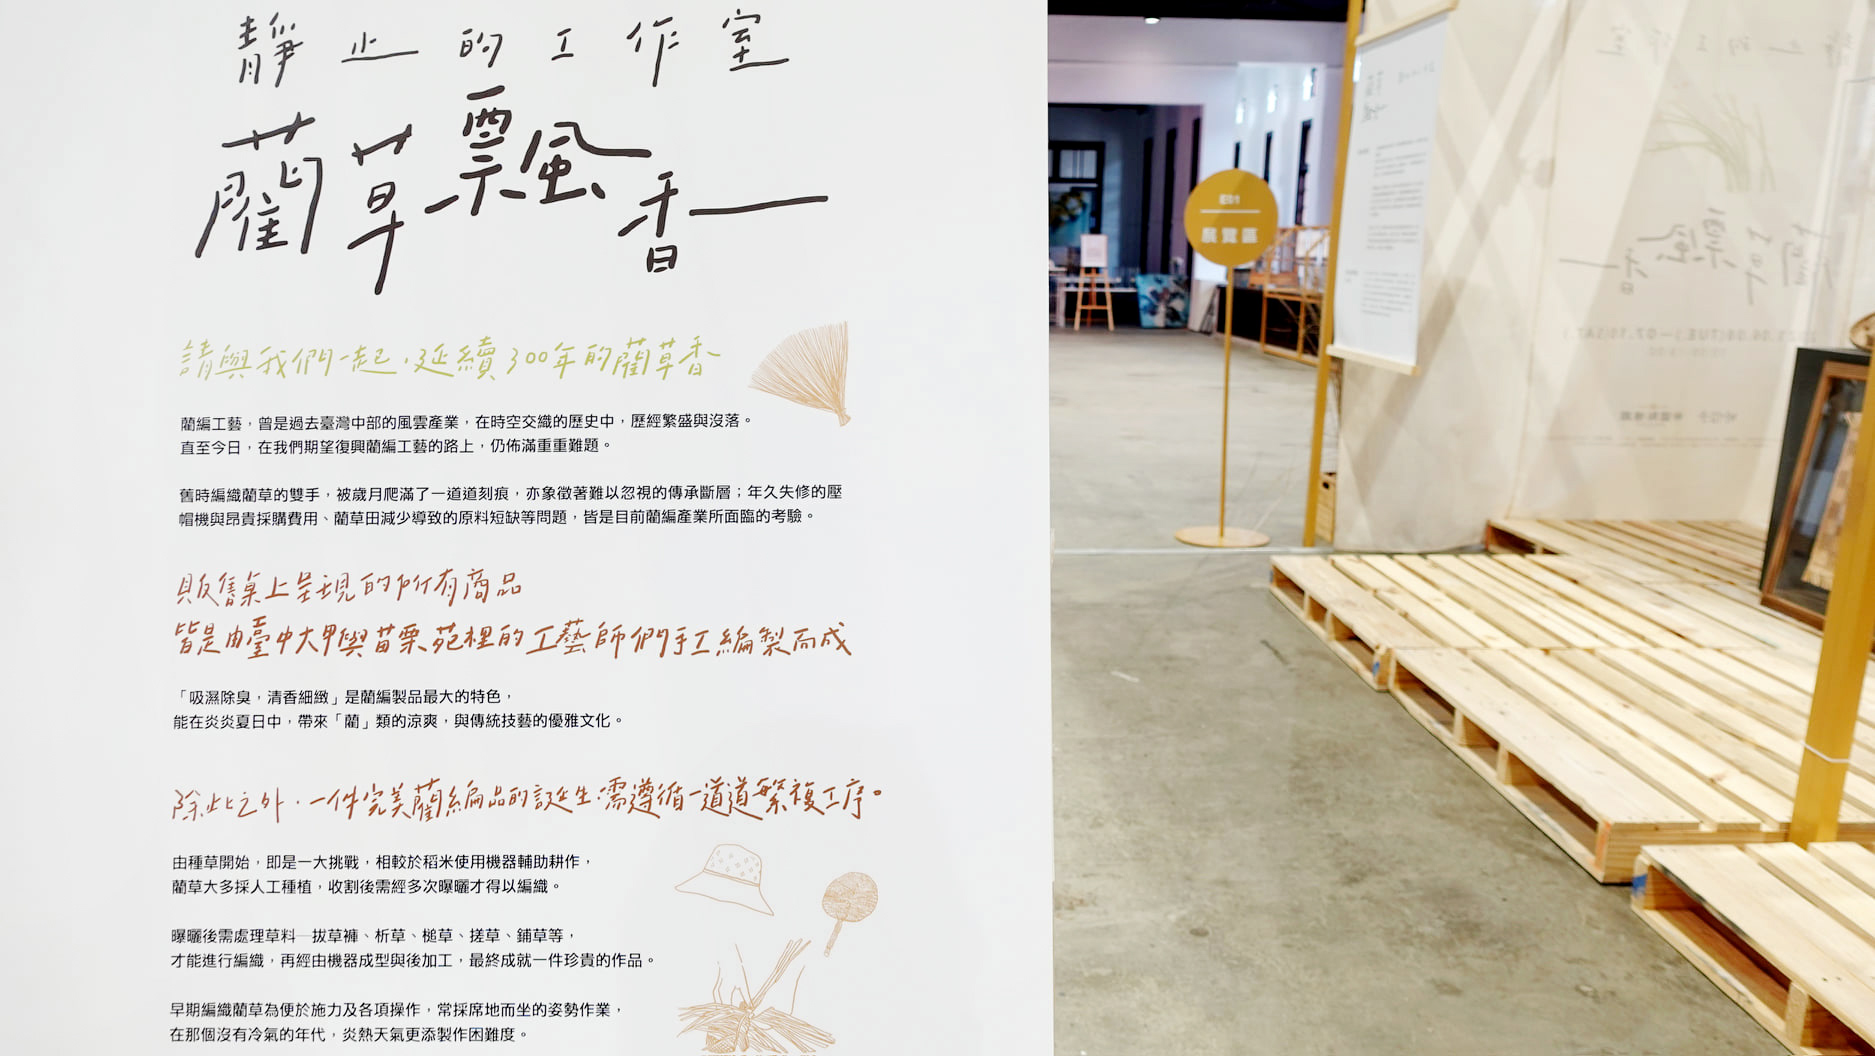 靜止的工作室
藺草飄香
請與我們一起，延續300年的藺草香
藺編工藝，曾是過去臺灣中部的風雲產業，在時空交織的歷史中，歷經繁盛與沒落。
直至今日，在我們期望復興藺編工藝的路上，仍佈滿重重難題。
舊時編織藺草的雙手，被歲月爬滿了一道道刻痕，亦象徵著難以忽視的傳承斷層；年久失修的壓
帽機與昂貴採購費用、藺草田減少導致的原料短缺等問題，皆是目前藺編產業所面臨的考驗。
販售桌上呈現的所有商品
皆是由臺中大甲與苗栗苑裡的工藝師們手工編製而成
「吸濕除臭，清香細緻」是藺編製品最大的特色，
能在炎炎夏日中，帶來「藺」類的涼爽，與傳統技藝的優雅文化。
除此之外，一件完美藺編品的誕生，需遵循一道道繁複工序。
由種草開始，即是一大挑戰，相較於稻米使用機器輔助耕作，
藺草大多採人工種植，收割後需經多次曝曬才得以編織。
曝曬後需處理草料─拔草褲、析草、槌草、搓草、鋪草等，
才能進行編織，再經由機器成型與後加工，最終成就一件珍貴的作品。
早期編織藺草為便於施力及各項操作，常採席地而坐的姿勢作業，
在那個沒有冷氣的年代，炎熱天氣更添製作困難度。
E01
展覽區